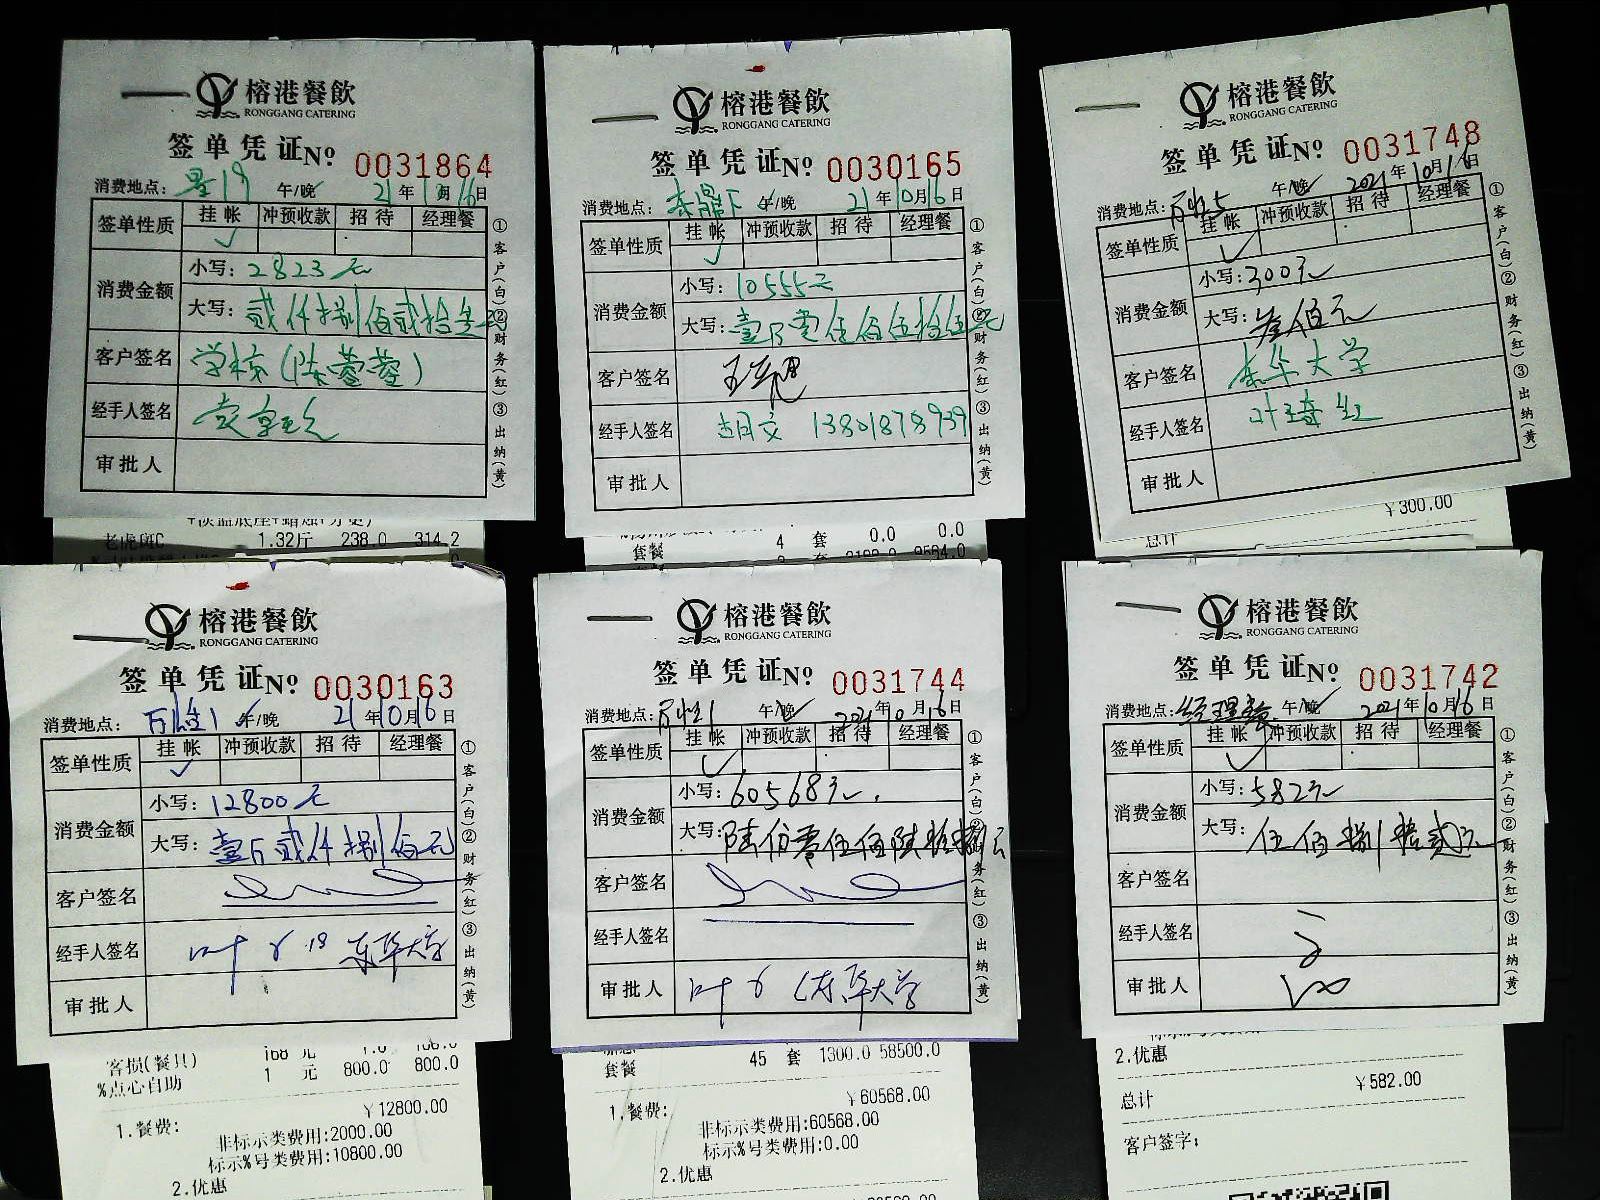 榕港餐飲
RONGGANG CATERING
签单凭证№ 0031864
消费地点: 星19 午/晚 21年10月16日
签单性质 挂帐 冲预收款 招待 经理餐
✓
消费金额 小写: 2823元
大写: 贰仟捌佰贰拾叁元
客户签名 学校(陈蓉蓉)
经手人签名
审批人
①客户(白)②财务(红)③出纳(黄)
+淡盐底座+蜡烛
老虎斑C 1.32斤 238.0 314.2
榕港餐飲
RONGGANG CATERING
签单凭证№ 0030165
消费地点: 东鼎下 午/晚 21年10月16日
签单性质 挂帐 冲预收款 招待 经理餐
✓
消费金额 小写: 10555元
大写: 壹万零伍佰伍拾伍元
客户签名
经手人签名 胡文 13801878939
审批人
①客户(白)②财务(红)③出纳(黄)
套餐 4 套 0.0 0.0
榕港餐飲
RONGGANG CATERING
签单凭证№ 0031748
消费地点: 万胜5 午/晚 2021年10月16日
签单性质 挂帐 冲预收款 招待 经理餐
✓
消费金额 小写: 300元
大写: 叁佰元
客户签名 东华大学
经手人签名 叶琦红
审批人
①客户(白)②财务(红)③出纳(黄)
￥300.00
总计
榕港餐飲
RONGGANG CATERING
签单凭证№ 0030163
消费地点: 万胜1 午/晚 21年10月16日
签单性质 挂帐 冲预收款 招待 经理餐
✓
消费金额 小写: 12800元
大写: 壹万贰仟捌佰元
客户签名
经手人签名 叶 东华大学
审批人
①客户(白)②财务(红)③出纳(黄)
客损(餐具) 168 元 1.0 168.0
%点心自助 1 元 800.0 800.0
1.餐费: ￥12800.00
非标示类费用:2000.00
标示%号类费用:10800.00
2.优惠
榕港餐飲
RONGGANG CATERING
签单凭证№ 0031744
消费地点: 万胜1 午/晚 2021年10月16日
签单性质 挂帐 冲预收款 招待 经理餐
✓
消费金额 小写: 60568元
大写: 陆万零伍佰陆拾捌元
客户签名
经手人签名
审批人 叶 东华大学
①客户(白)②财务(红)③出纳(黄)
套餐 45 套 1300.0 58500.0
1.餐费: ￥60568.00
非标示类费用:60568.00
标示%号类费用:0.00
2.优惠
榕港餐飲
RONGGANG CATERING
签单凭证№ 0031742
消费地点: 经理餐 午/晚 2021年10月16日
签单性质 挂帐 冲预收款 招待 经理餐
✓
消费金额 小写: 582元
大写: 伍佰捌拾贰元
客户签名
经手人签名
审批人
①客户(白)②财务(红)③出纳(黄)
2.优惠
总计 ￥582.00
客户签字: